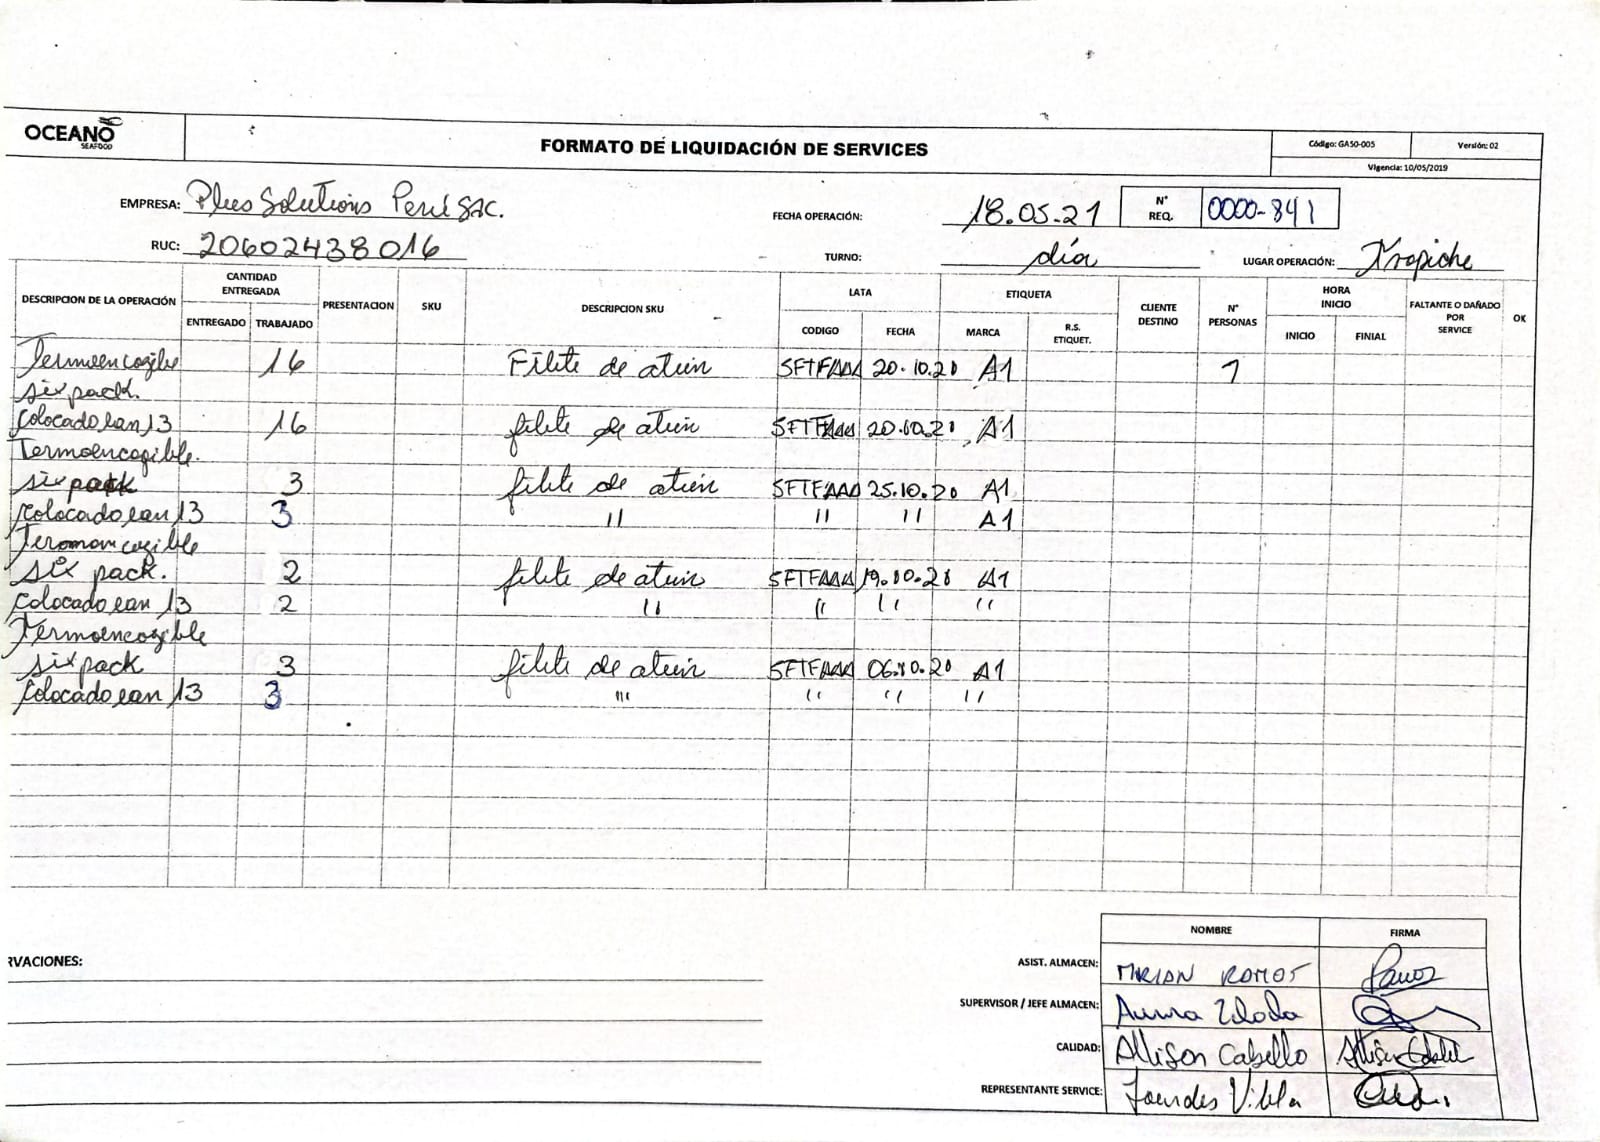 OCEANO
SEAFOOD
FORMATO DE LIQUIDACIÓN DE SERVICES
Código: GA50-005
Versión: 02
Vigencia: 10/05/2019
EMPRESA: Plus Solutions Perú SAC.
FECHA OPERACIÓN: 18.05.21
N° REQ. 0000-841
RUC: 20602438016
TURNO: día
LUGAR OPERACIÓN: Trapiche
DESCRIPCION DE LA OPERACIÓN
CANTIDAD ENTREGADA
ENTREGADO TRABAJADO
PRESENTACION
SKU
DESCRIPCION SKU
LATA
CODIGO FECHA
ETIQUETA
MARCA R.S. ETIQUET.
CLIENTE DESTINO
N° PERSONAS
HORA INICIO
INICIO FINIAL
FALTANTE O DAÑADO POR SERVICE
OK
Termoencogible 16 Filete de atún SFTFAAA 20.10.20 A1 1
six pack.
Colocado ean 13 16 filete de atún SFTFAAA 20.10.20 A1
Termoencogible.
six pack 3 filete de atún SFTFAAA 25.10.20 A1
Colocado ean 13 3 " " " A1
Teromoncogible
six pack. 2 filete de atún SFTFAAA 19.10.20 A1
Colocado ean 13 2 " " " "
Termoencogible
six pack 3 filete de atún SFTFAAA 06.10.20 A1
Colocado ean 13 3 " " " "
RVACIONES:
NOMBRE FIRMA
ASIST. ALMACEN: MIRIAN RAMOS Ramos
SUPERVISOR / JEFE ALMACEN:
CALIDAD: Allison Cabello
REPRESENTANTE SERVICE: Lourdes Vilela